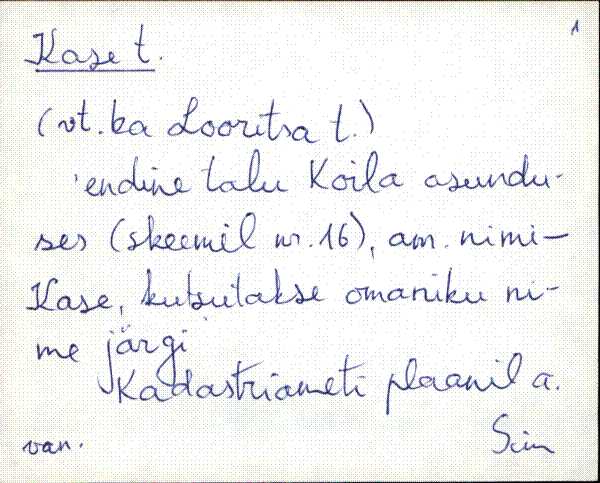 1
Kase t.
(vt. ka Looritsa t.)
'endine talu Koila asundu-
ses (skeemil nr. 16), am. nimi-
Kase, kutsutakse omaniku ni-
me järgi
Kadastriameti plaanil a.
van.